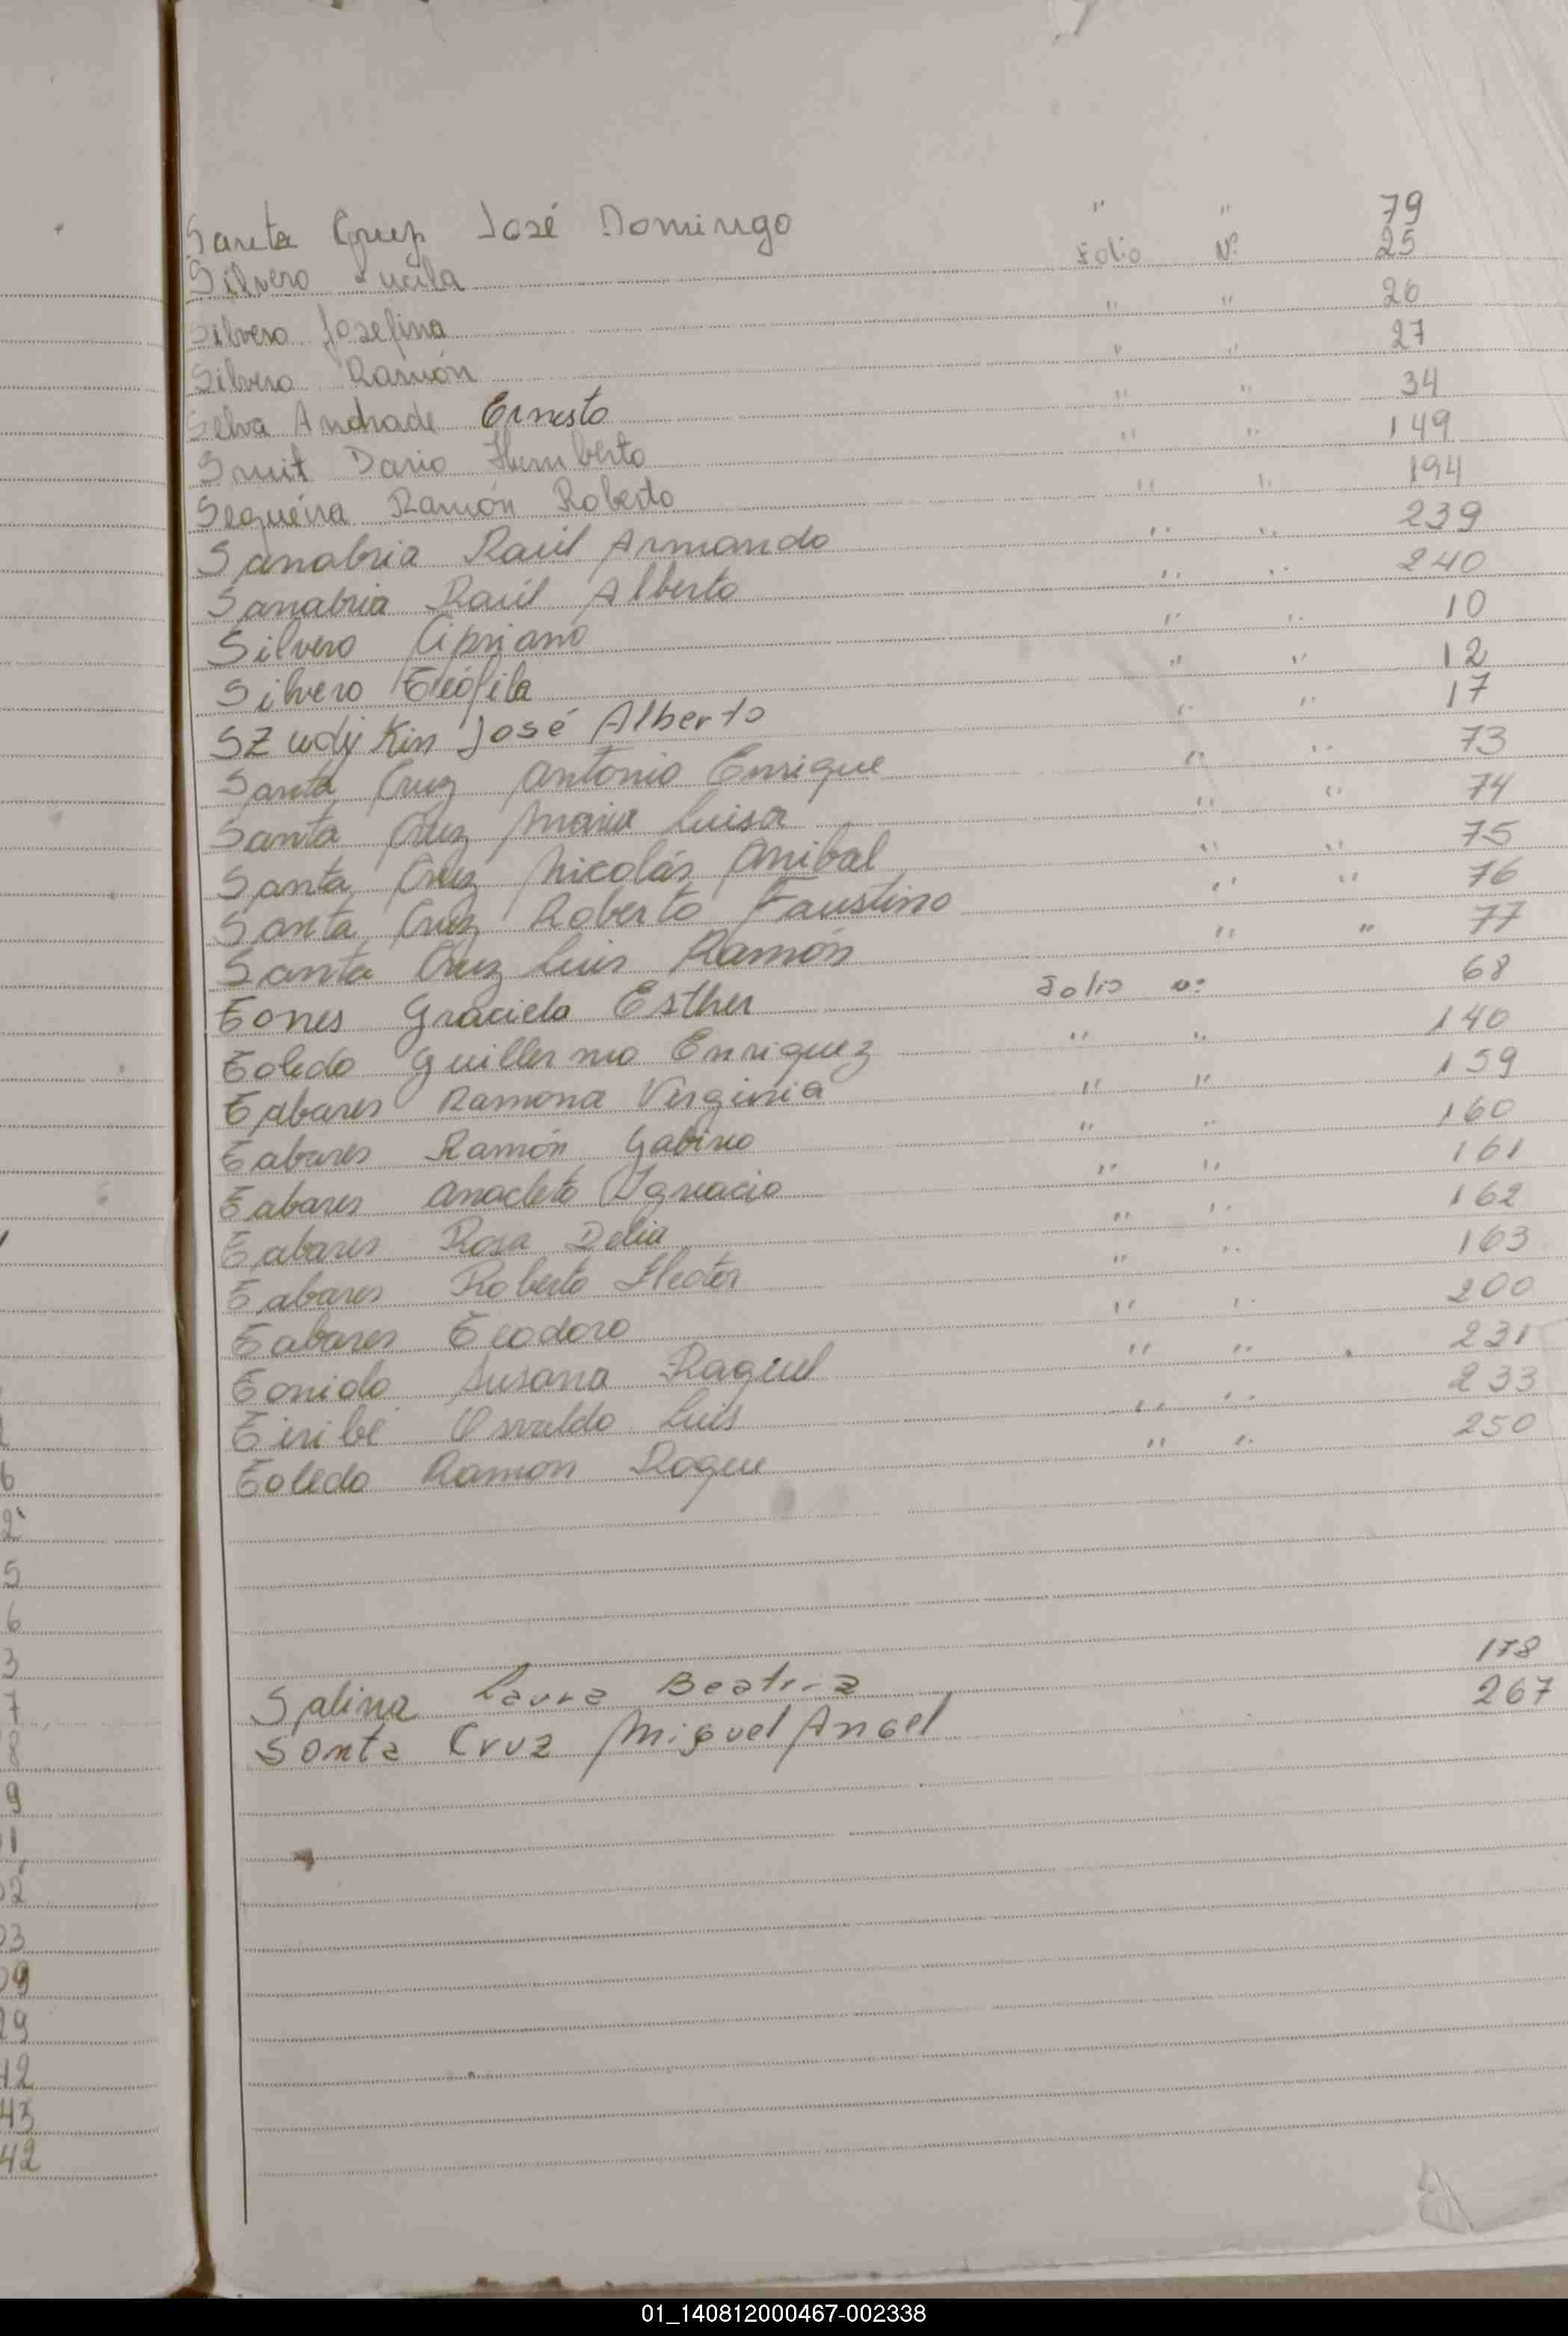 Santa Cruz José Domingo " " 79
Silvero Lucila Folio Nº 25
Silvero Josefina " " 26
Silvero Ramón " " 27
Selva Andrade Ernesto " " 34
Smit Dario Humberto " " 149
Sequeira Ramón Roberto " " 194
Sanabria Raúl Armando " " 239
Sanabria Raúl Alberto " " 240
Silvero Cipriano " " 10
Silvero Teófila " " 12
SZudy Kin José Alberto " " 17
Santa Cruz Antonio Enrique " " 73
Santa Cruz Maria Luisa " " 74
Santa Cruz Nicolás Anibal " " 75
Santa Cruz Roberto Faustino " " 76
Santa Cruz Luis Ramón " " 77
Tones Graciela Esther Folio Nº 68
Toledo Guillermo Enriquez " " 140
Tabares Ramona Virginia " " 159
Tabares Ramón Gabino " " 160
Tabares Anacleto Ignacio " " 161
Tabares Rosa Delia " " 162
Tabares Roberto Hector " " 163
Tabares Teodoro " " 200
Tonido Susana Raquel " " 231
Tiribe Osvaldo Luis " " 233
Toledo Ramon Roque " " 250
Salina Laura Beatriz 178
Santa Cruz Miguel Angel 267
6
2
5
6
3
7
8
9
1
02
03
09
29
42
43
42
01_140812000467-002338